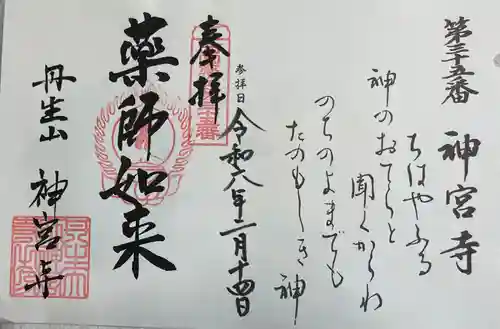 第三十五番 神宮寺
ちはやふる
神のおてらと
聞くからわ
のちのよまでも
たのもしき神
参拝日 令和六年二月十四日
奉拝
藥師如来
丹生山 神宮寺